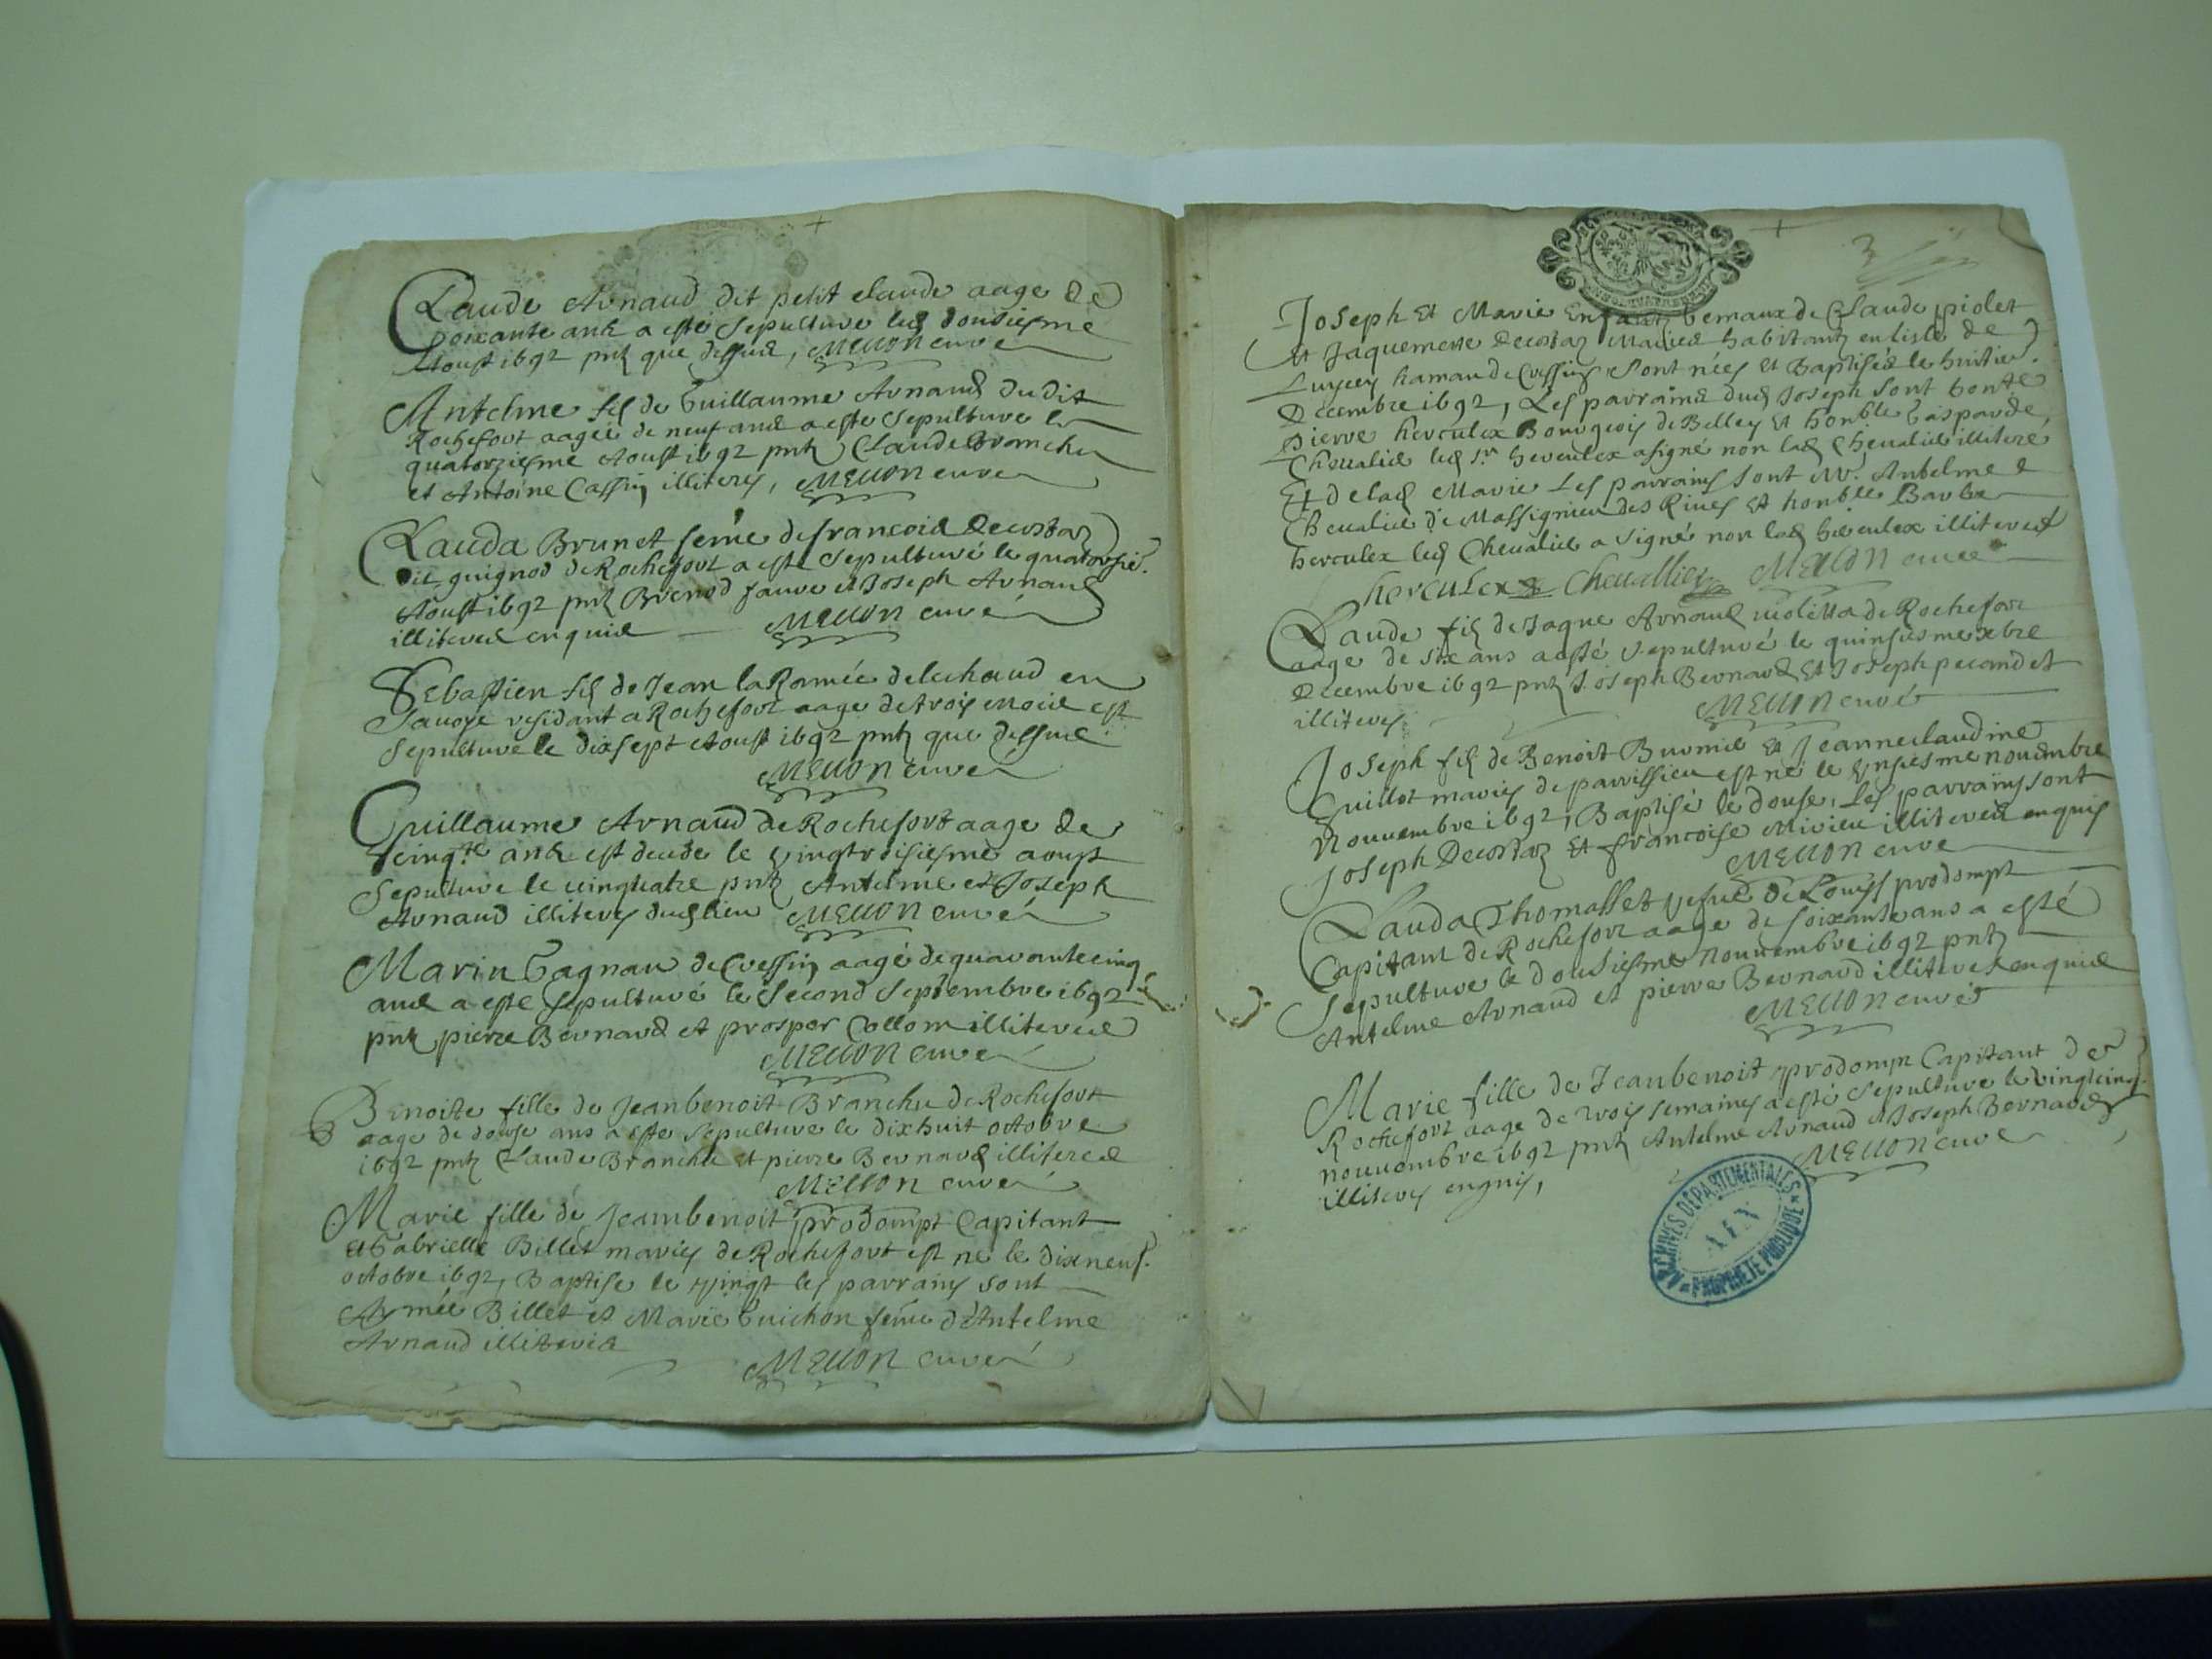 Claude Arnaud dit petit claude aage de
soixante ans a esté sepulturé led douziesme
Aoust 1692 pnts que dessus, MEllON curé
Antelme fils de Guillaume Arnaud dudit
Rochefort aagée de neuf ans a esté sepulturé le
quatorziesme Aoust 1692 pnts Claude Branche
et Antoine Cassin illiterés, MEllON curé
Clauda Brunet feme de francois Decostaz
dit guignod de Rochefort a esté sepulturé le quatorzie.
Aoust 1692 pnts Brenod faure et Joseph Arnaud
illiteres enquis MEllON curé
Sebastien fils de Jean la Ramée delechaud en
Savoye residant a Rochefort aage de trois mois est
sepulturé le dixsept Aoust 1692 pnts que dessus
MEllON curé
Guillaume Arnaud de Rochefort aage de
cinqte ans est decede le vingtroisiesme aoust
sepulturé le vingtcatre pnts Antelme et Joseph
Arnaud illiterés dud lieu MEllON curé
Marin Gagnau de Cressin aagé de quarante cinq
ans a esté sepulturé le second septembre 1692
pnts pierre Bernard et prosper Collom illiteres
MEllON curé
Benoite fille de Jeanbenoit Branche de Rochefort
aage de douse ans a esté sepulturé le dixhuit octobre
1692 pnts Claude Branche et pierre Bernard illiteres
MEllON curé
Marie fille de Jeambenoit prodompt Capitant
et Gabrielle Billet mariés de Rochefort est né le dixneuf.
octobre 1692, Baptisé le vingt les parrains sont
Aymée Billet et Marie Guichon feme d'Antelme
Arnaud illiteres
MEllON curé
3
Joseph et Marie Enfants Gemaux de Claude piolet
et Jaquemette Decostaz Mariés habitants en lisle de
Luyrey hamau de Cressin sont nées et Baptisés le huitie.
Decembre 1692, Les parrains dud Joseph sont honte
pierre herculex Bourgeois de Belley et honble Gasparde
Chevalier led sr herculex a signé non lad Chevalier illiteré
Et de lad Marie Les parrains sont Mr. Antelme
Chevalier de Massignieu des Rives et honble Barbe
herculex led Chevalier a signé non lad herculex illiteres
herculex Chevallier MEllON curé
Claude fils de Jaque Arnaud violetta de Rochefort
aage de six ans a esté sepulturé le quinsiesme xbre
Decembre 1692 pnts Joseph Bernard et Joseph pecandet
illiterés MEllON curé
Joseph fils de Benoit Burnier et Jeanneclaudine
Guillot mariés de parvissieu est né le unsiesme nouembre
Nouuembre 1692, Baptisé le douse, Les parrains sont
Joseph Decostaz et francoise Mivieu illiteres enquis
MEllON curé
Clauda Thomasset vefue de Louys prodompt
Capitant de Rochefort aage de soixante ans a esté
sepulturé le dousiesme Nouuembre 1692 pnts
Antelme Arnaud et pierre Bernard illiteres enquis
MEllON curé
Marie fille de Jeanbenoit prodompt Capitant de
Rochefort aage de trois semaines a esté sepulturé le vingtcinq.
nouuembre 1692 pnts Antelme Arnaud et Joseph Bernard
illiterés enquis, MEllON curé
ARCHIVES DÉPARTEMENTALES
AIN
PROPRIÉTÉ PUBLIQUE